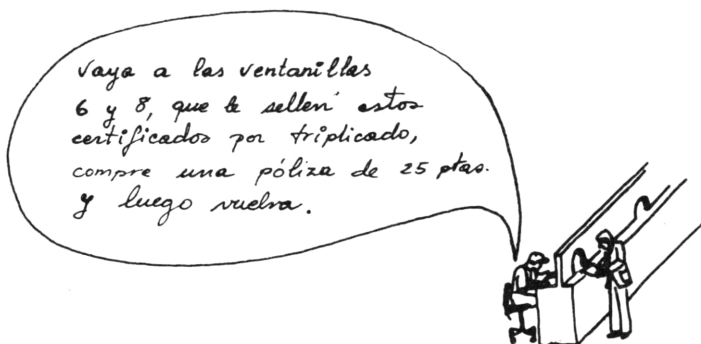 Vaya a las ventanillas
6 y 8, que le sellen estos
certificados por triplicado,
compre una póliza de 25 ptas.
y luego vuelva.